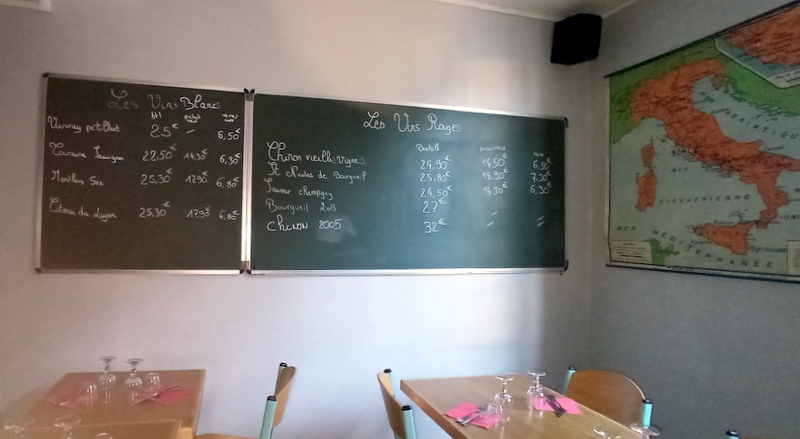 Les Vins Blancs
btl pichet verre
Vouvray pétillant 25€ 6,50€
Touraine Sauvignon 22,50€ 14,30€ 6,30€
Montlouis Sec 25,30€ 17,90€ 6,80€
Coteau du Layon 25,30€ 17,90€ 6,80€
Les Vins Rouges
Bouteille
Chinon vieilles vignes 24,90€ 14,50€ 6,50€
St Nicolas de Bourgueil 25,80€ 7,30€
Saumur champigny 24,50€ 14,30€ 6,30€
Bourgueil 2013 27€
Chinon 2005 32€
MER MEDITERRANEE